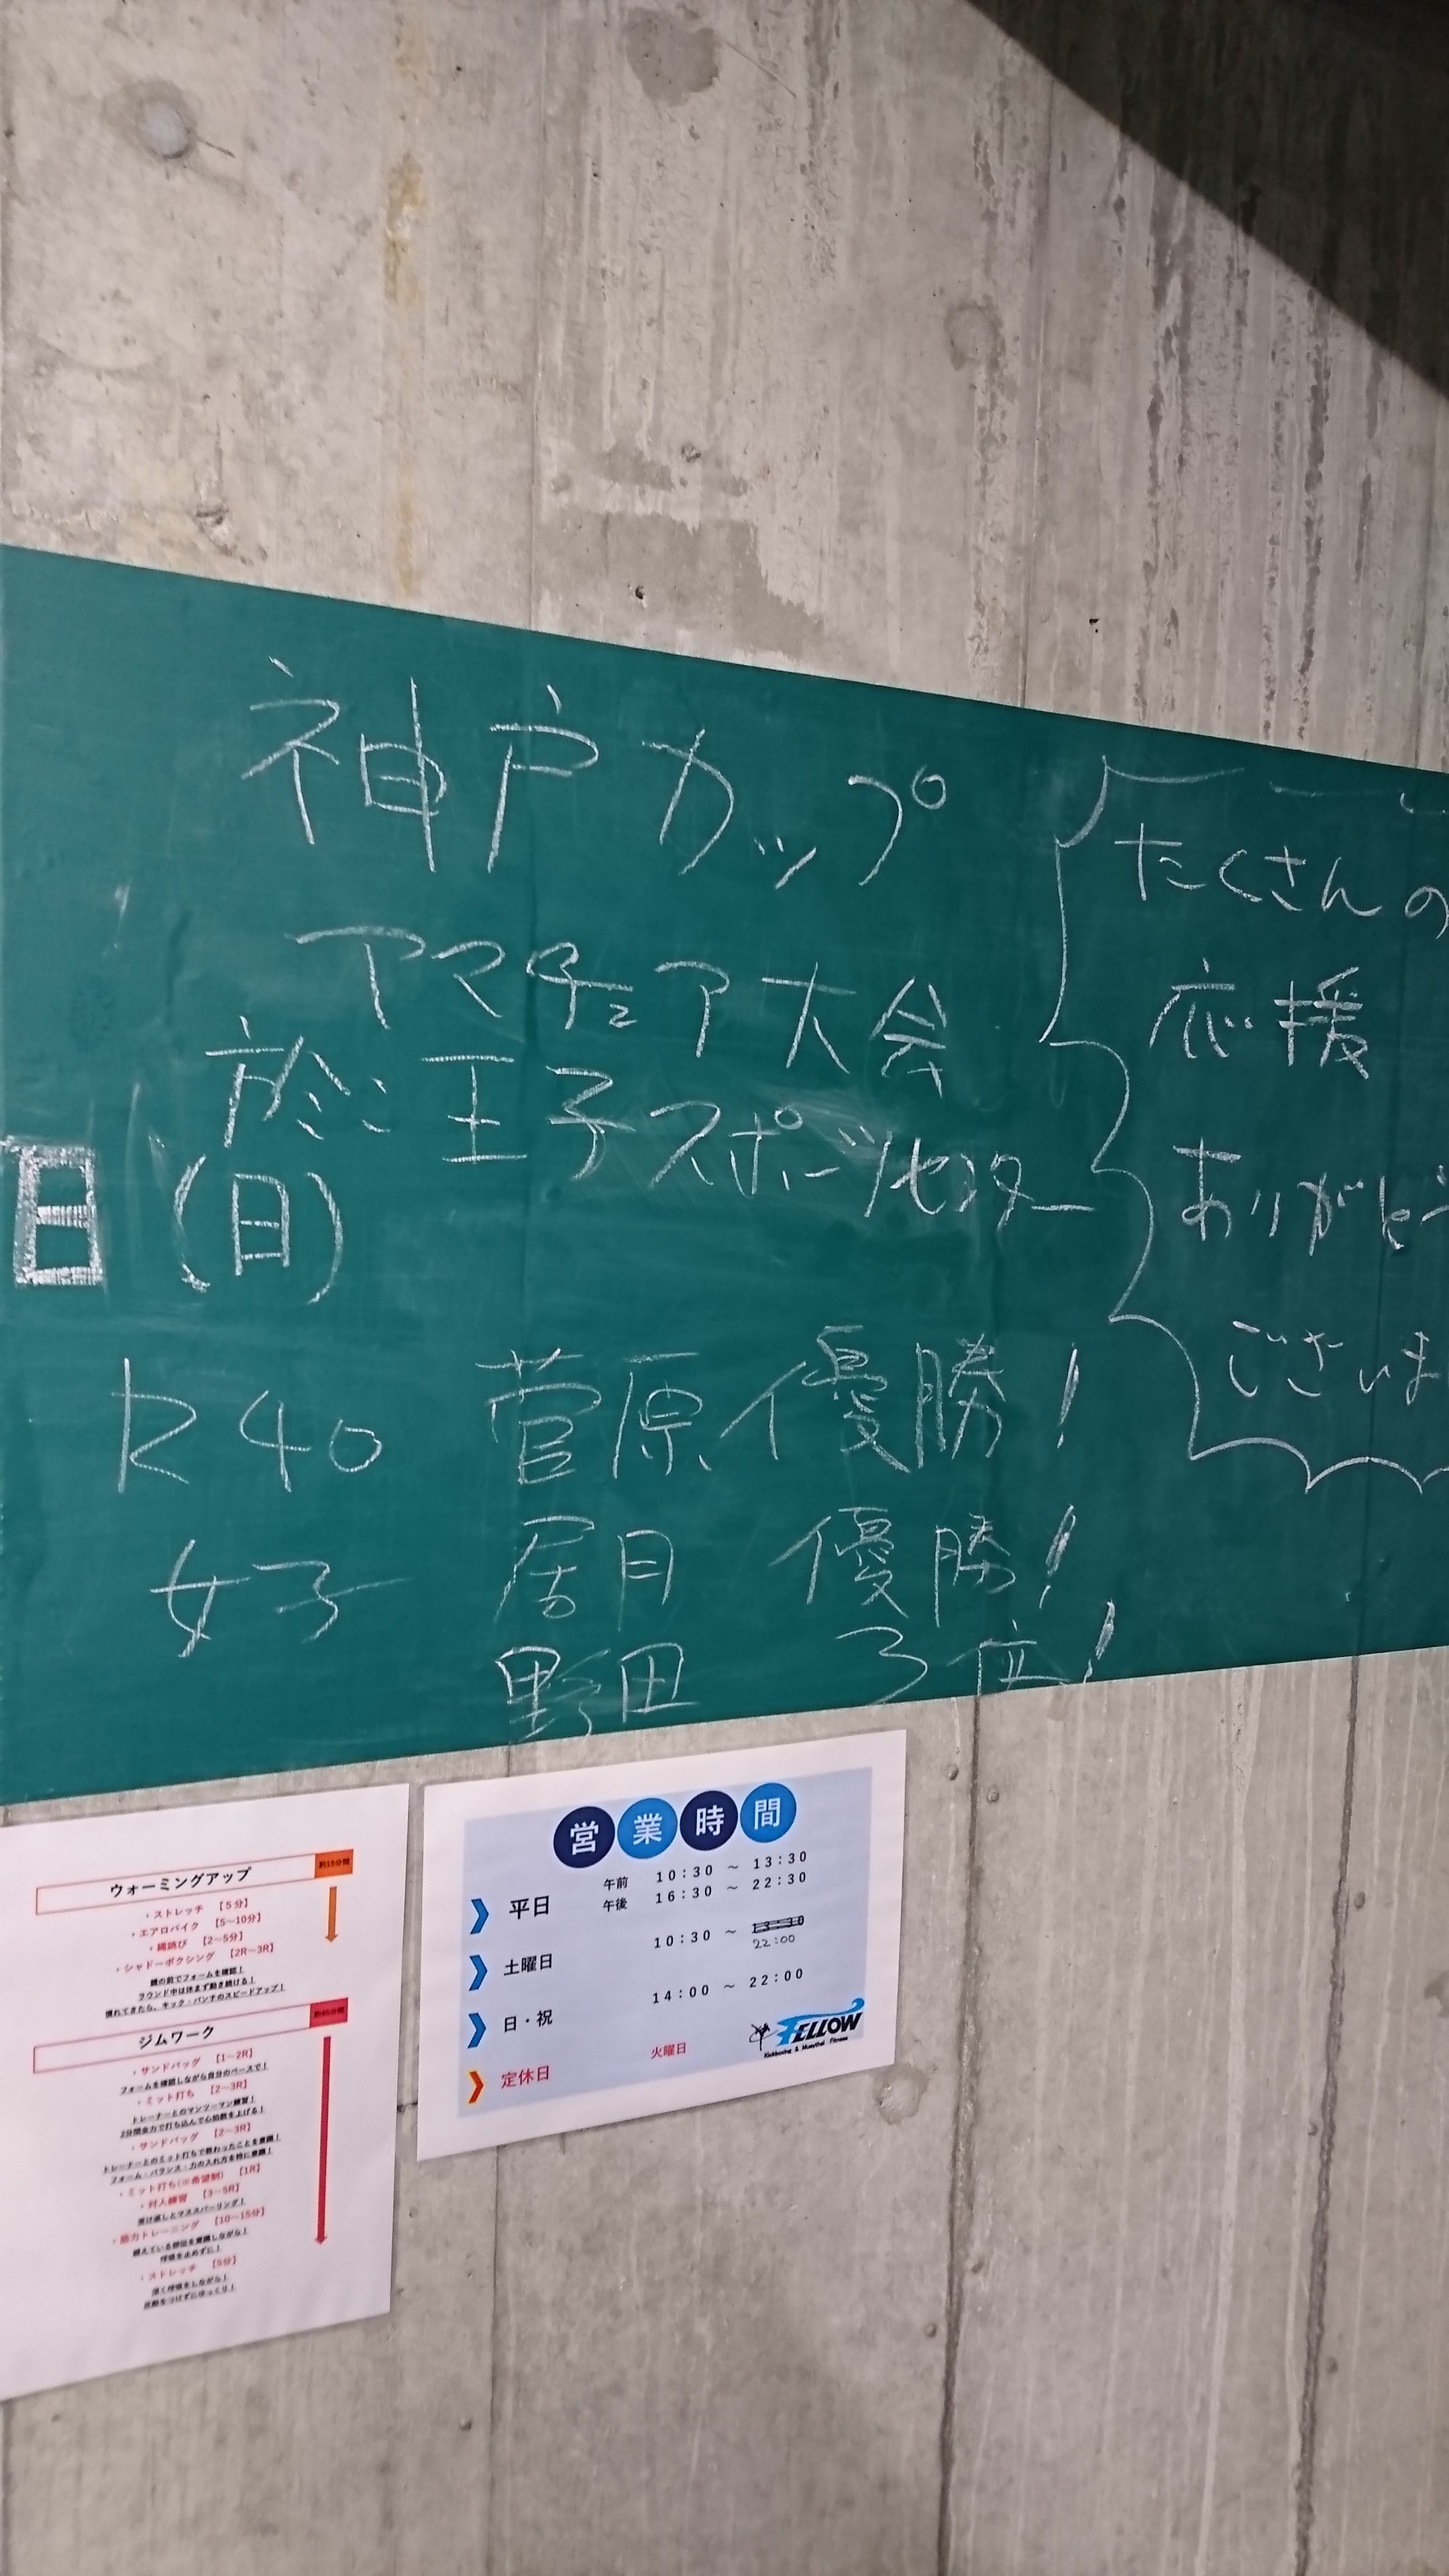 神戸カップ
アマチュア大会
於:王子スポーツセンター
日(日)
R40 菅原 優勝!
女子 居月 優勝!
野田 3位!
たくさんの
応援
ありがとう
ございま
ウォーミングアップ 約15分間
・ストレッチ 【5分】
・エアロバイク 【5~10分】
・縄跳び 【2~5分】
・シャドーボクシング 【2R~3R】
鏡の前でフォームを確認!
ラウンド中は休まず動き続ける!
慣れてきたら、キック・パンチのスピードアップ!
ジムワーク
・サンドバッグ 【1~2R】
フォームを確認しながら自分のペースで!
・ミット打ち 【2~3R】
トレーナーとのマンツーマン練習!
2分間全力で打ち込んで心拍数を上げる!
・サンドバッグ 【2~3R】
トレーナーとのミット打ちで教わったことを意識!
フォーム・バランス・力の入れ方を特に意識!
・ミット打ち(※希望制) 【1R】
・対人練習 【3~5R】
受け返しとマススパーリング!
・筋力トレーニング 【10~15分】
鍛えている部位を意識しながら!
呼吸を止めずに!
・ストレッチ 【5分】
深く呼吸をしながら!
反動をつけずにゆっくり!
営業時間
平日 午前 10:30 ~ 13:30
午後 16:30 ~ 22:30
土曜日 10:30 ~ 13:30
22:00
日・祝 14:00 ~ 22:00
定休日 火曜日
FELLOW
Kickboxing & Muaythai Fitness